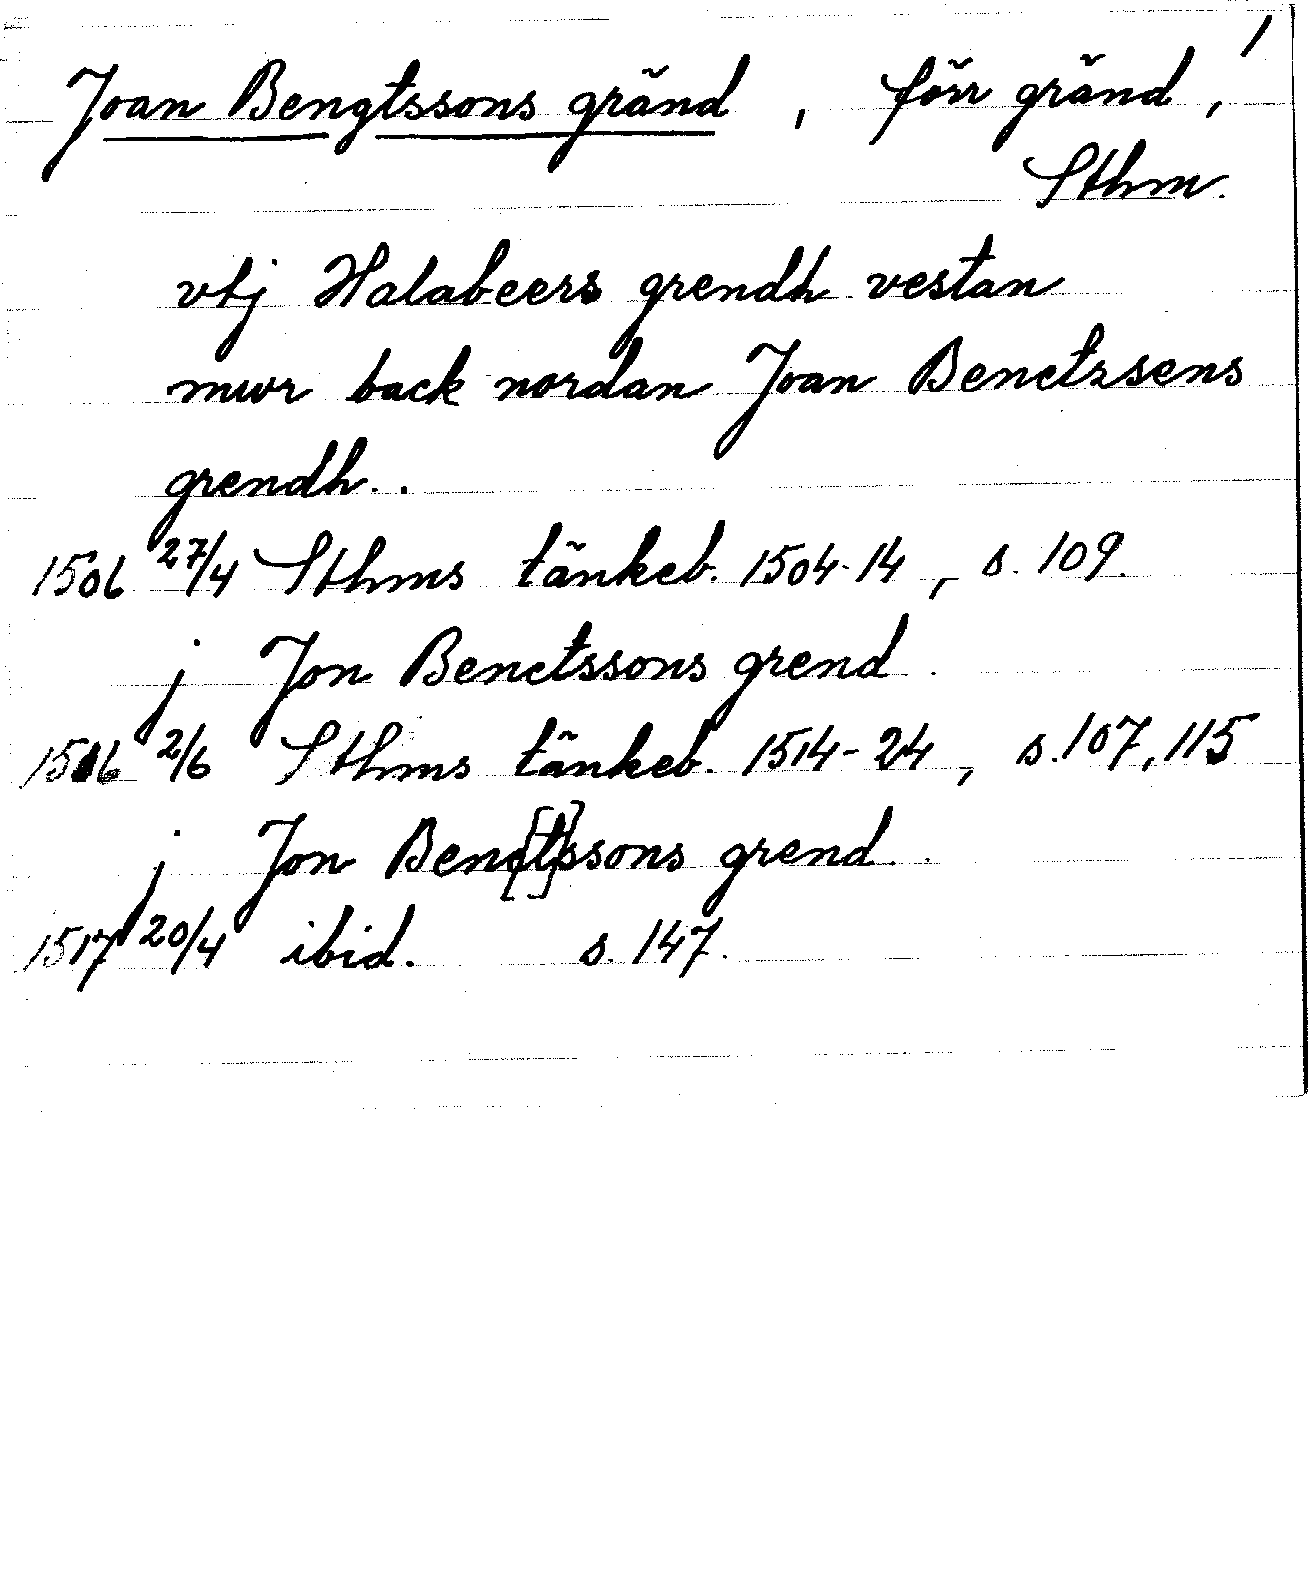 1
Joan Bengtssons gränd, förr gränd,
Sthm.
vtj Halabeers grendh vestan
mwr back nordan Joan Benctzsens
grendh..
1506 27/4 Sthms tänkeb. 1504-14, s. 109.
j Jon Benctssons grend
1516 2/6 Sthms tänkeb. 1514-24, s. 107, 115
j Jon Benc[t]ssons grend
1517 20/4 ibid. s. 147.